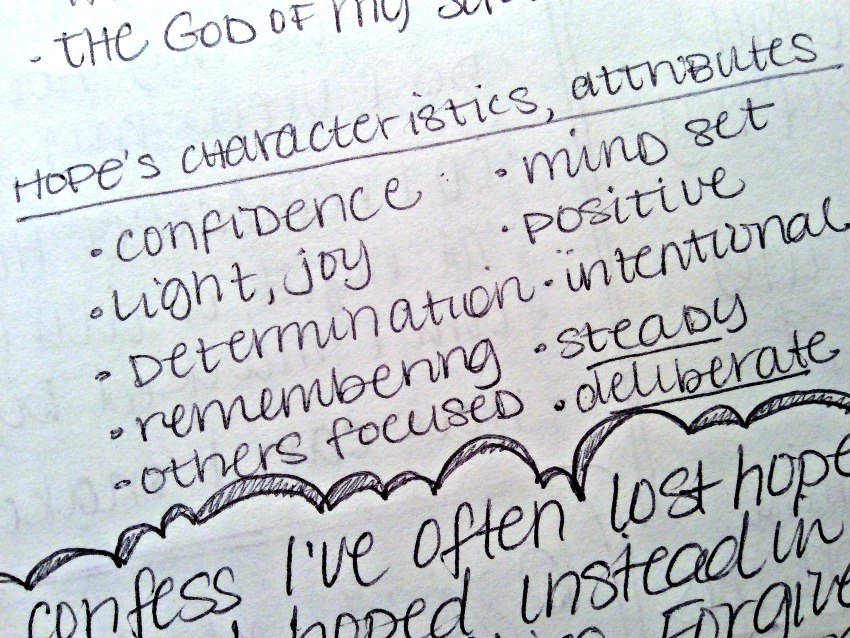 · THE GOD OF my
HOPE'S CHARACTERISTICS, ATTRIBUTES
· CONFIDENCE · MIND SET
· LIGHT, JOY · POSITIVE
· DETERMINATION · INTENTIONAL
· REMEMBERING · STEADY
· OTHERS FOCUSED · deliberate
confess I've often lost hope
hoped instead in
Forgive